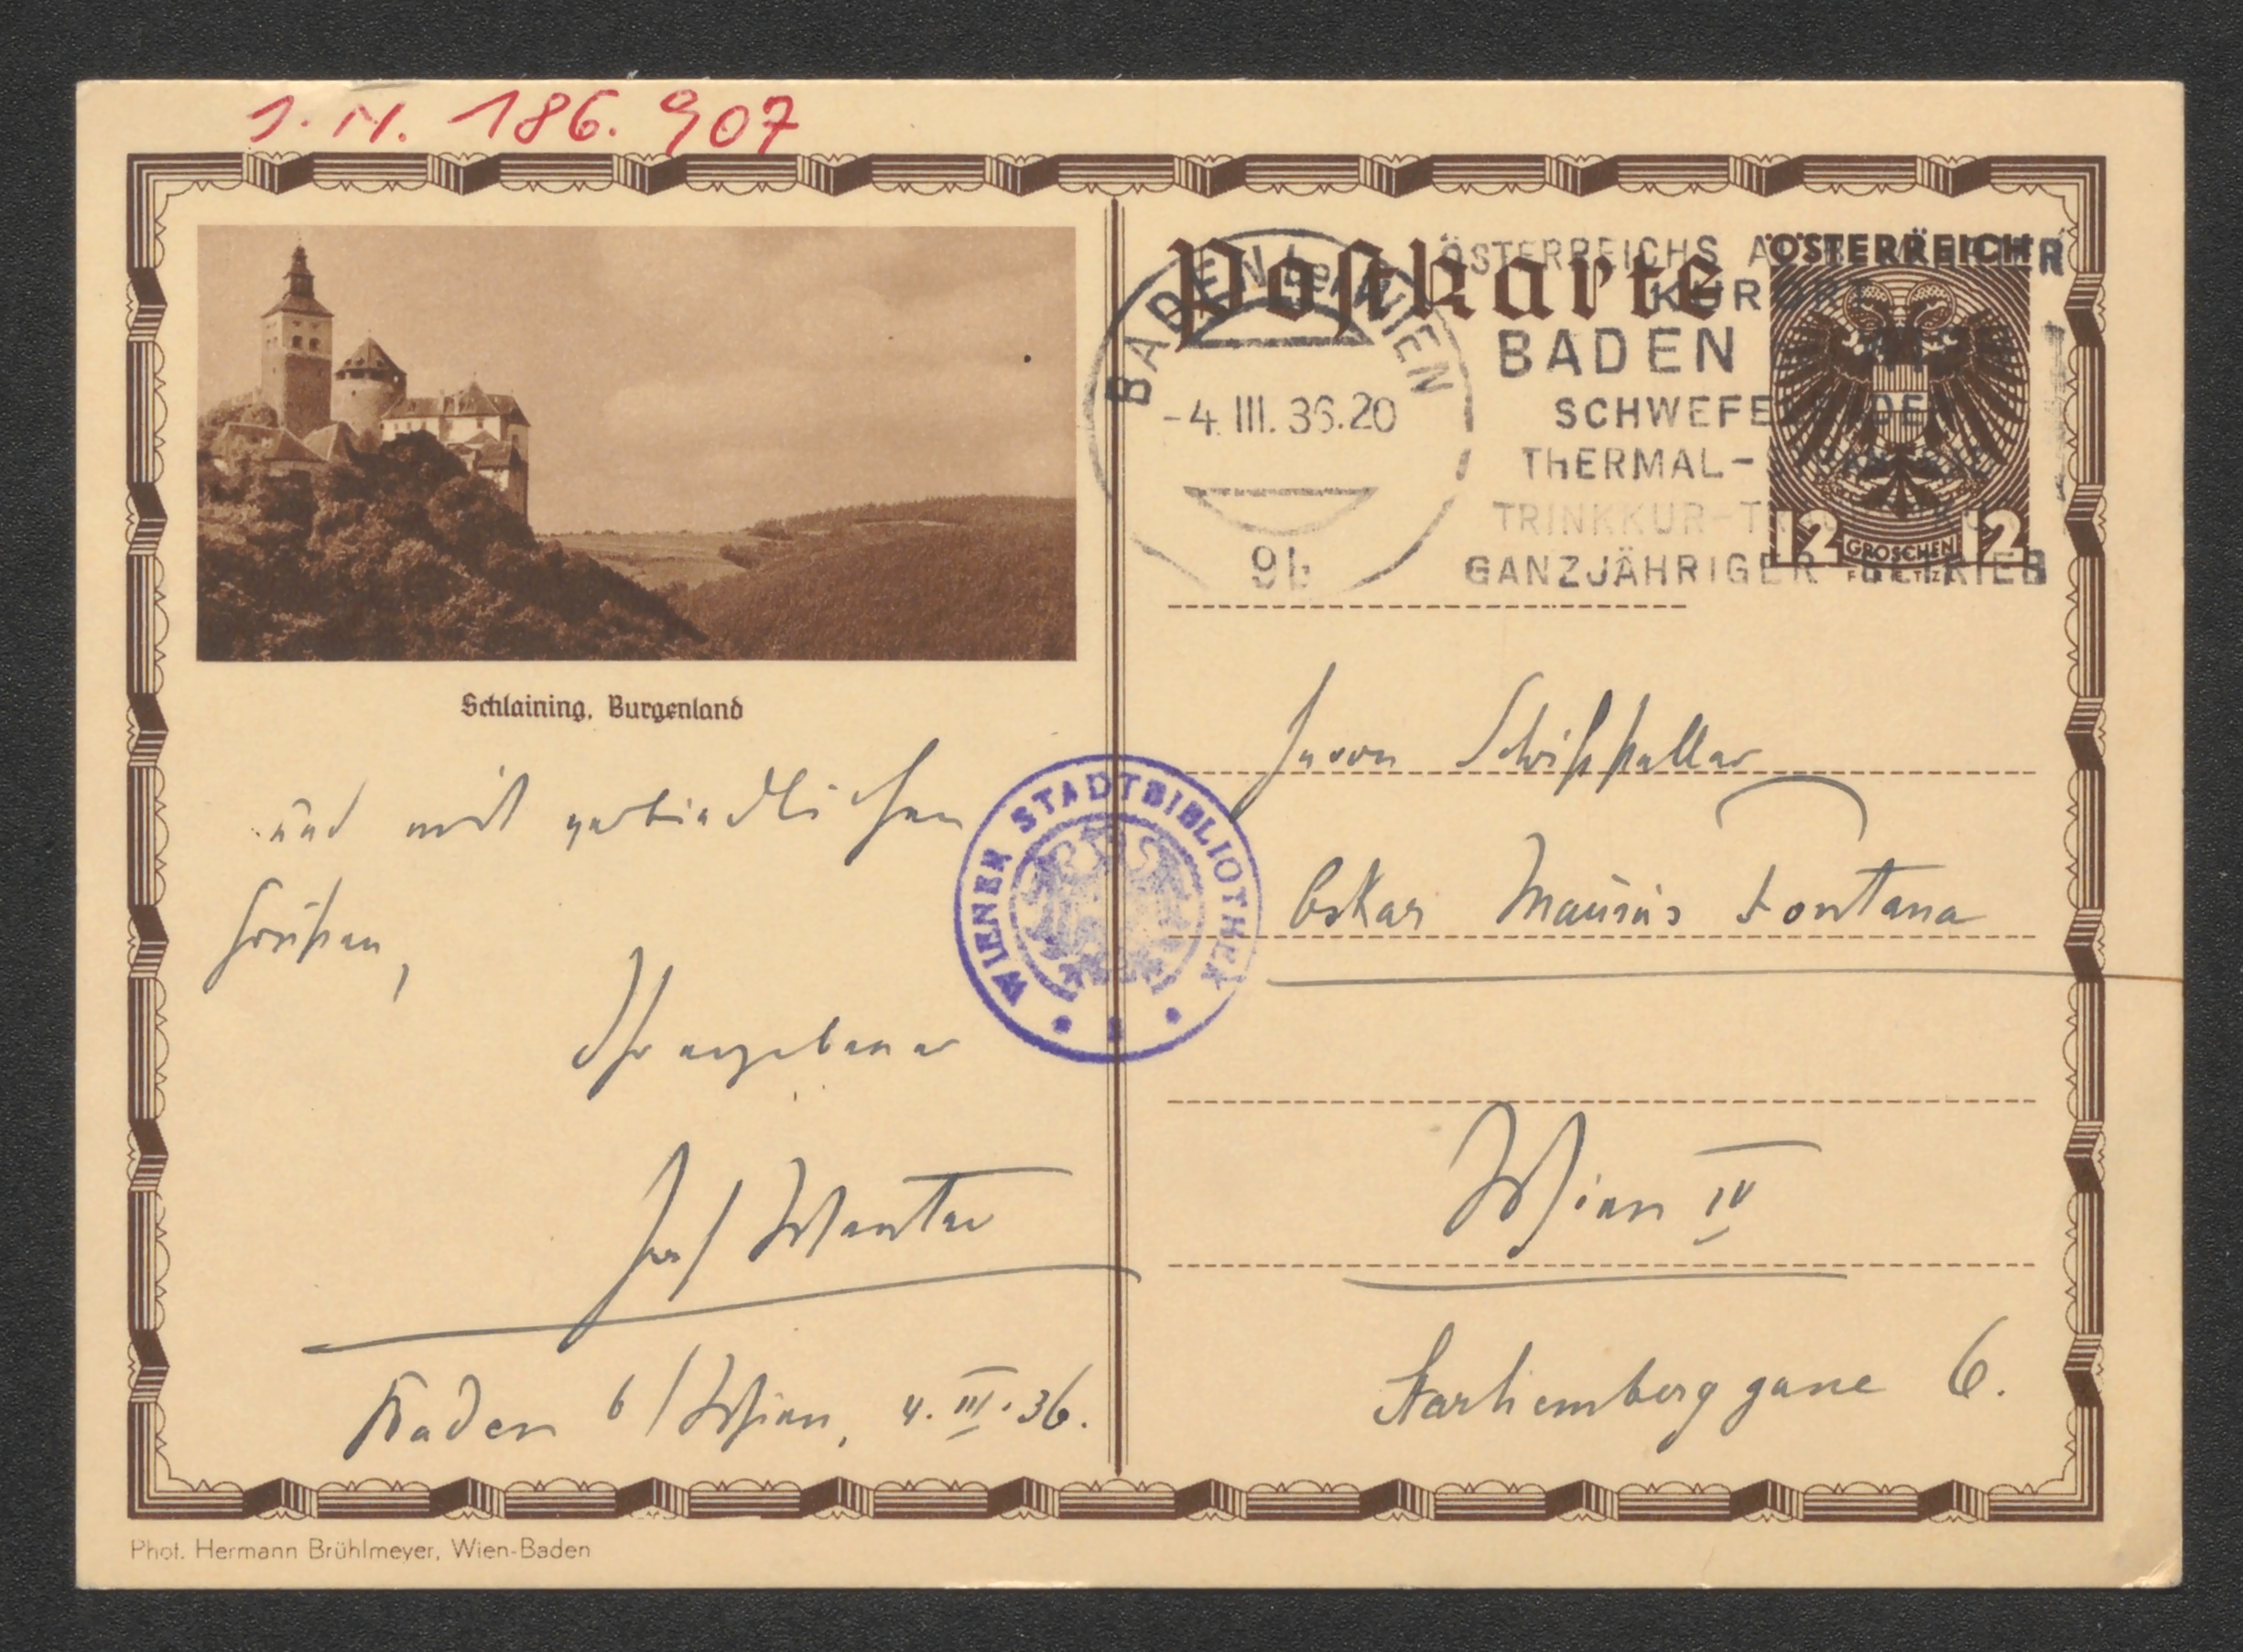 J. N. 186.907
Postkarte
BADEN bei WIEN
-4. III. 36.20
9b
ÖSTERREICHS
KURORT
BADEN
SCHWEFELBÄDER
THERMAL-
TRINKKUR-
GANZJÄHRIGER BETRIEB
ÖSTERREICH
12 GROSCHEN 12
Schlaining, Burgenland
und mit verbindlichen
Grüßen,
Ihr ergebener
Josef Wenter
Baden b/Wien, 4. III. 36.
WIENER STADTBIBLIOTHEK
Herrn Schriftsteller
Oskar Maurus Fontana
Wien IV
Starhemberggasse 6.
Phot. Hermann Brühlmeyer, Wien-Baden